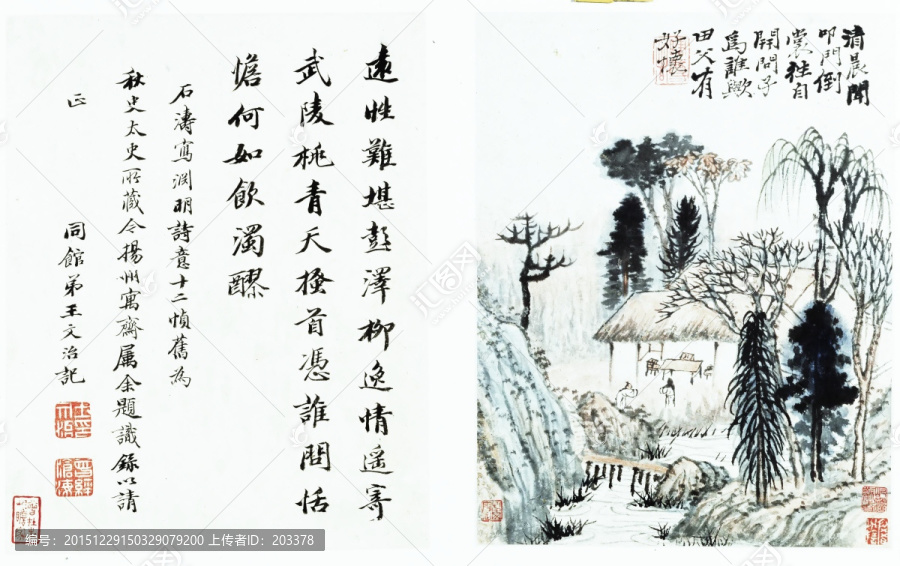 清晨聞
叩門倒
裳往自
開問子
為誰歟
田父有
好懷
遠性難堪彭澤柳逸情遥寄
武陵桃青天搔首憑誰問恬
憺何如飲濁醪
石濤寫淵明詩意十二幀舊為
秋史太史所藏今揚州寓齋属余題識録以請
正 同館弟王文治記
编号：20151229150329079200 上传者ID：203378